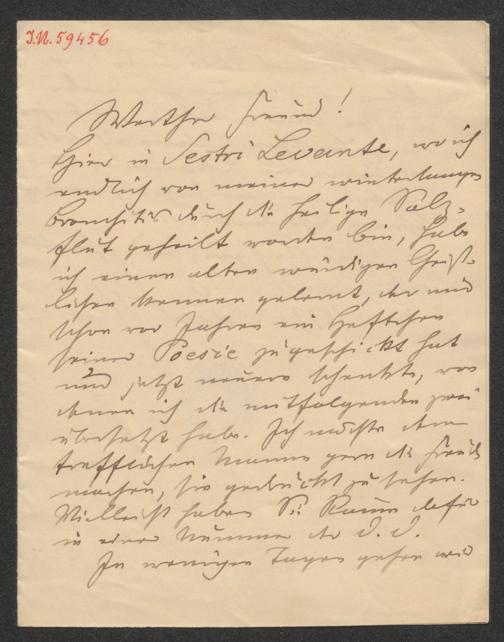 I.N. 59456
Werther Freund!
Hier in Sestri Levante, wo ich
endlich von meiner winterlangen
Bronchitis durch die heilige Salz-
flut geheilt worden bin, habe
ich einen alten würdigen Geist-
lichen kennen gelernt, der mir
schon vor Jahren ein Heftchen
seiner Poesie zugeschickt hat
und jetzt neuere schenkte, von
denen ich die mitfolgenden zwei
übersetzt habe. Ich möchte dem
trefflichen Manne gern die Freude
machen, sie gedruckt zu sehen.
Vielleicht haben Sie Raum dafür
in einer Nummer der D. D.
In wenigen Tagen gehen wir